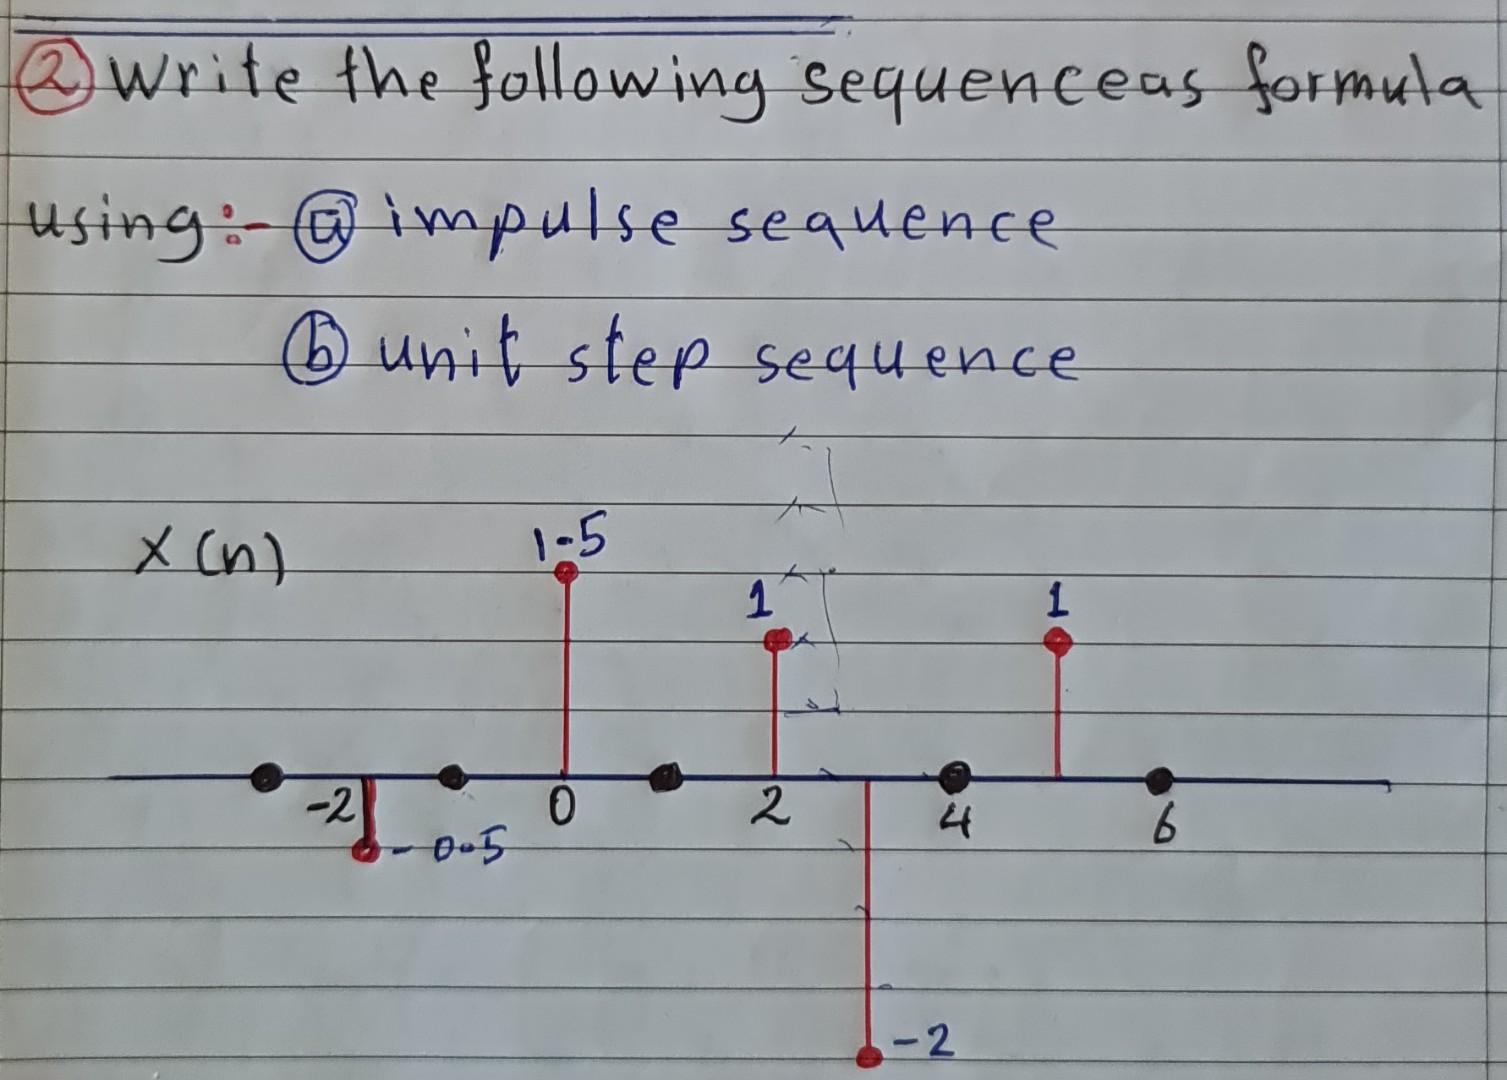 ② Write the following sequenceas formula
using:- ⓐ impulse sequence
ⓑ unit step sequence
X(n)
1-5
1
1
-2
0
2
4
6
-0-5
-2